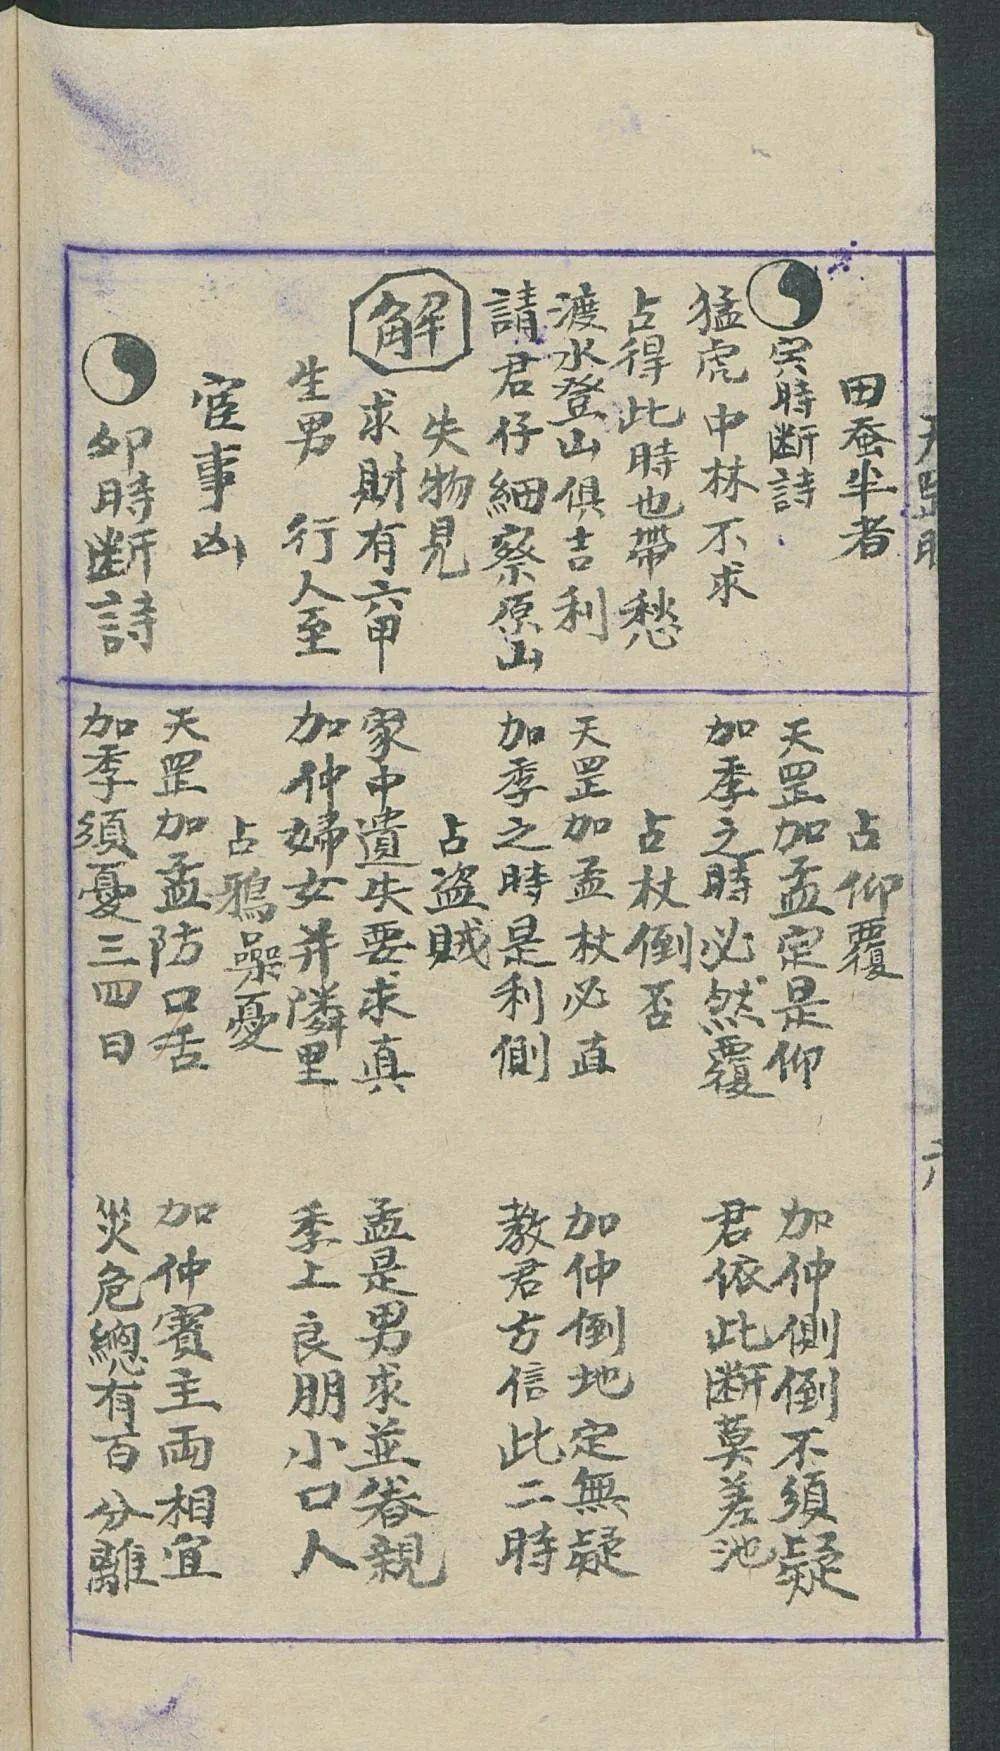 田蚕半者
寅時断詩
猛虎中林不求
占得此時也帶愁
渡水登山俱吉利
請君仔細察原山
失物見
解
求財有六甲
生男 行人至
官事凶
卯時断詩
占仰覆
天罡加孟定是仰 加仲側倒不須疑
加季之時必然覆 君依此断莫差池
占杖倒否
天罡加孟杖必直 加仲倒地定無疑
加季之時是利側 教君方信此二時
占盗賊
家中遺失要求真 孟是男求並眷親
加仲婦女并隣里 季上良朋小口人
占鴉噪憂
天罡加孟防口舌 加仲賓主両相宜
加季須憂三四日 災危總有百分離